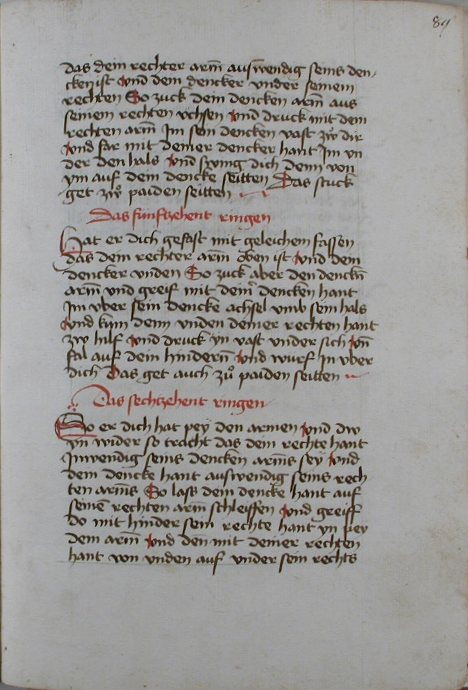 89
das dein rechter arm auswendig seins den-
cken ist vnd dein dencker vnder seinem
rechten So zuck dein dencken arm aus
seinem rechten vchsen vnd druck mit dem
rechten arm Im sein dencken vast zw dir
vnd far mit deiner dencker hant Im vn
der den hals vnd swing dich denn von
ym auf dein dencke seitten Das stuck
get zwͦ paiden seitten
Das funftzehent ringen
Hat er dich gefast mit geleichen fassen
das dein rechter arm oben ist vnd dein
dencker vnden So zuck aber den denckn̄
arm vnd greif mit deinꝰ dencken hant
Im vber sein dencke achsel vmb sein hals
vnd kum denn vnden deiner rechten hant
zw hilf vnd druck yn vast vnder sich vn̄
fal auf dein hindern̄ vnd wurf In vber
dich Das get auch zuͦ paiden seitten
Das sechtzehent ringen
So er dich hat pey den armen vnd dw
yn wider so tracht das dein rechte hant
Inwendig seins dencken arms sey vnd
dein dencke hant auswendig seins rech
ten arms So lass dein dencke hant auf
seinē rechten arm schleiffen vnd greiff
do mit hinder sein rechte hant yn pey
dem arm vnd den mit deiner rechten
hant von vnden auf vnder sein rechts